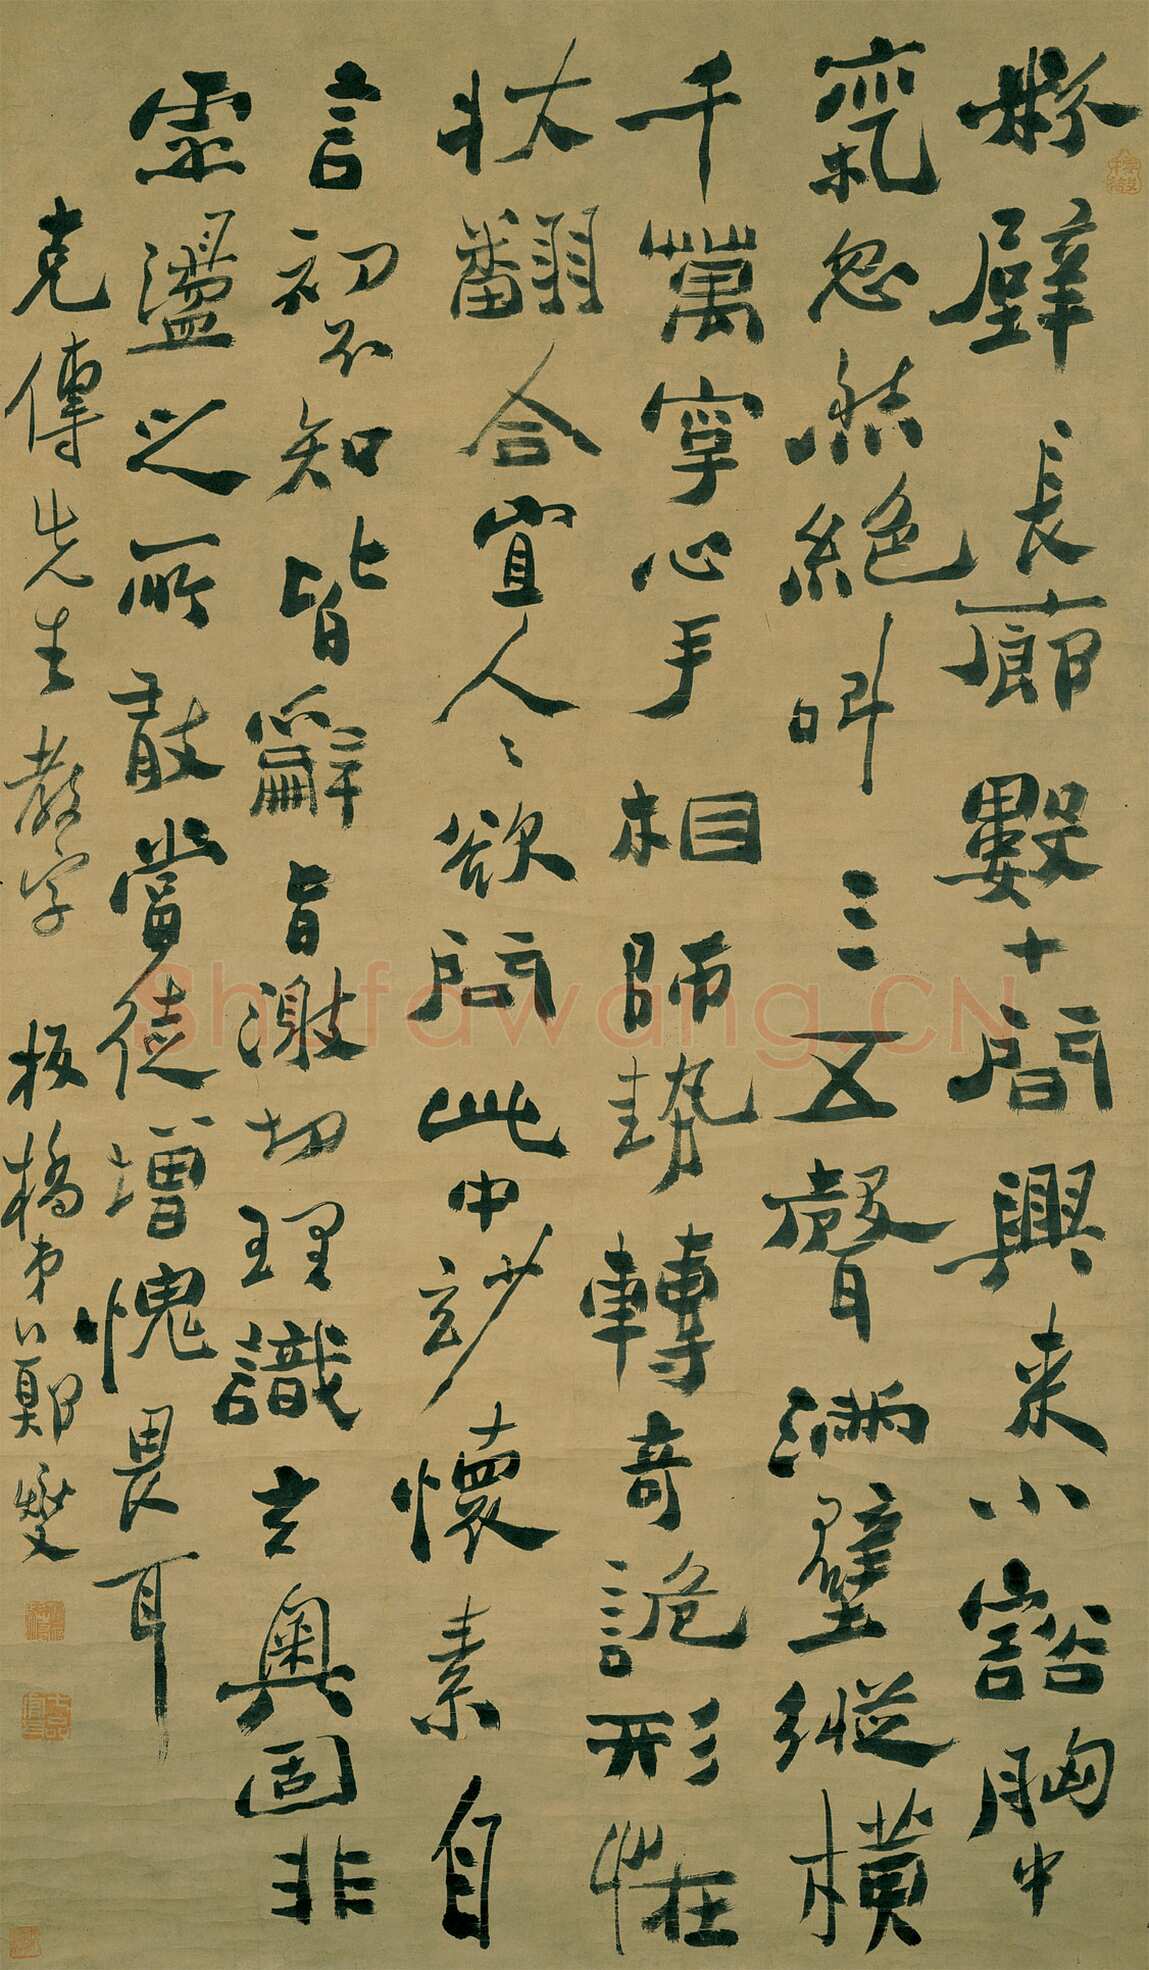 粉壁長廊數十間興来小豁胸中
氣忽然絕叫三五聲滿壁縱橫
千萬字心手相師勢轉奇詭形怪
狀翻合宜人〻欲問此中妙懷素自
言初不知皆辭旨激切理識玄奧固非
虛盪之所敢當徒增愧畏耳
克傳先生教字 板橋弟鄭燮
Shufawang.CN